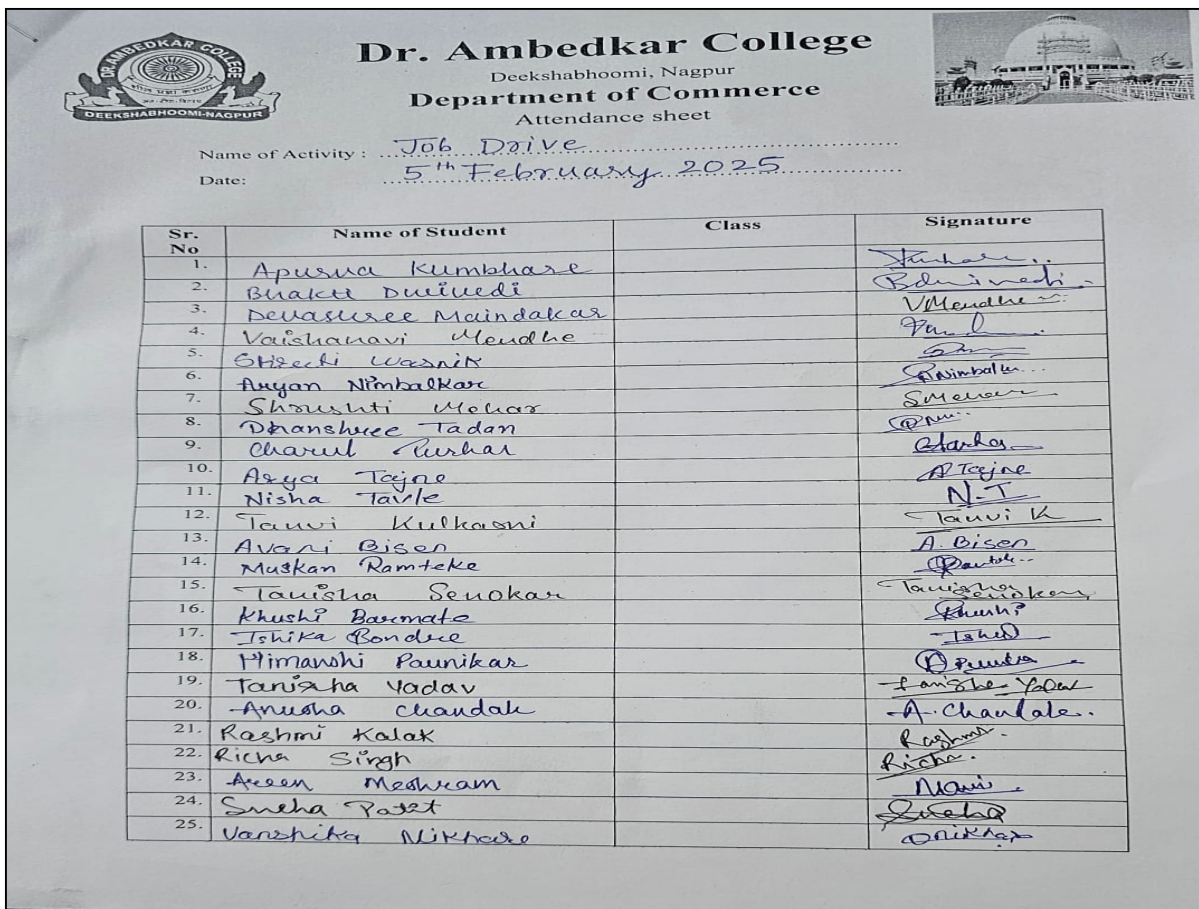 DR. AMBEDKAR COLLEGE
DEEKSHABHOOMI-NAGPUR
Dr. Ambedkar College
Deekshabhoomi, Nagpur
Department of Commerce
Attendance sheet
Name of Activity : Job Drive
Date: 5th February 2025
Sr. No Name of Student Class Signature
1. Apurva Kumbhare
2. Bhakti Dwivedi BDwivedi
3. Devashree Maindakar VMendhe
4. Vaishanavi Mendhe
5. Wasnik
6. Aryan Nimbalkar
7. Shrushti Mohar SMohar
8. Dhanshree Tadan
9. Charul
10. Arya Tajne A Tajne
11. Nisha Tavle N.T
12. Tanvi Kulkarni Tanvi K
13. Avani Bisen A. Bisen
14. Muskan Ramteke
15. Tanisha Senokar Tanisha Senokar
16. Khushi Barmate Khushi
17. Ishika Bondre
18. Himanshi Paunikar
19. Tanisha Yadav Tanisha Yadav
20. Anusha Chandak A. Chandak.
21. Rashmi Kalak Rashmi
22. Richa Singh Richa.
23. Meshram
24. Sneha Sneha
25. Vanshika Nikhare